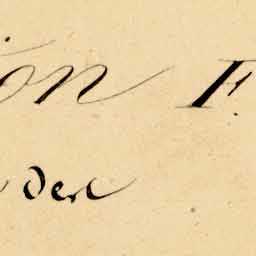 on F.
der